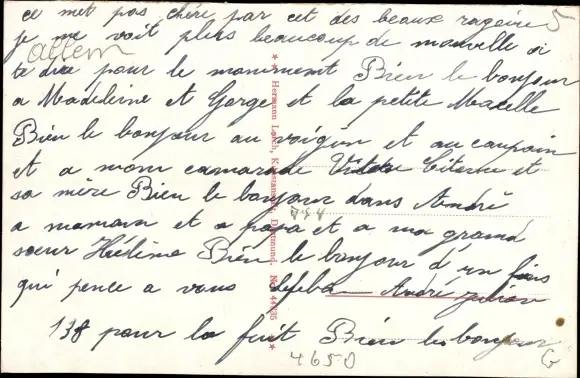 ce met pas chère par cet des beaux 5
je ne voit plus beaucoup de nouvelle a
allem
te dire pour le monument Bien le bonjour
a Madeleine et Gorge et la petite Marelle
Bien le bonjour au voigin et au coupain
et a mom camarade et
sa mère Bien le bonjour dans André
744
a mamam et a papa et a ma grand
sœur Hélène Bien le bonjour d'un
qui pence a vous André
138 pour la fuit Bien le bonjour
4650 G
** Hermann Lorch, Kunstanstalt, Dortmund. No. 44435 **